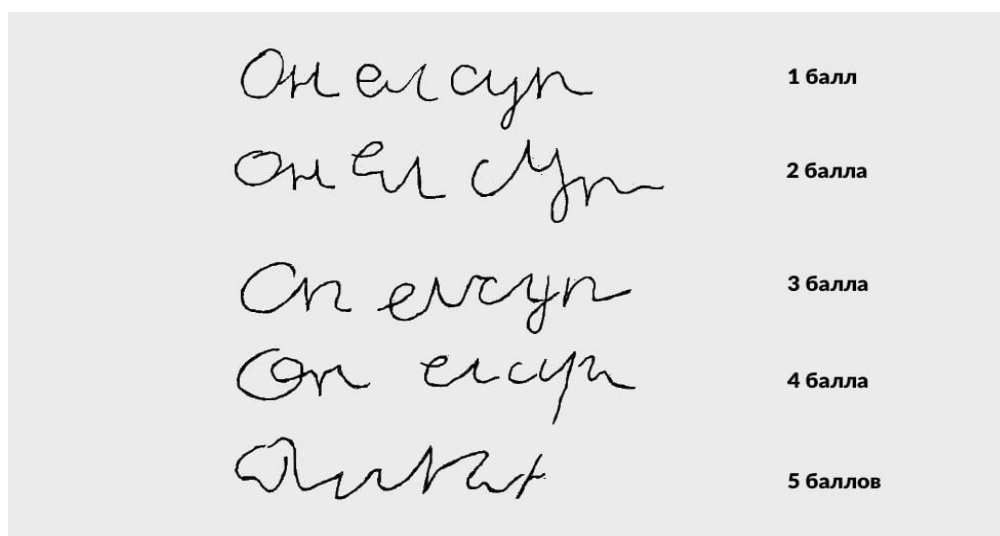 Он ел суп 1 балл
он Ел сУп 2 балла
Сп елсуп 3 балла
Оп елсуп 4 балла
5 баллов